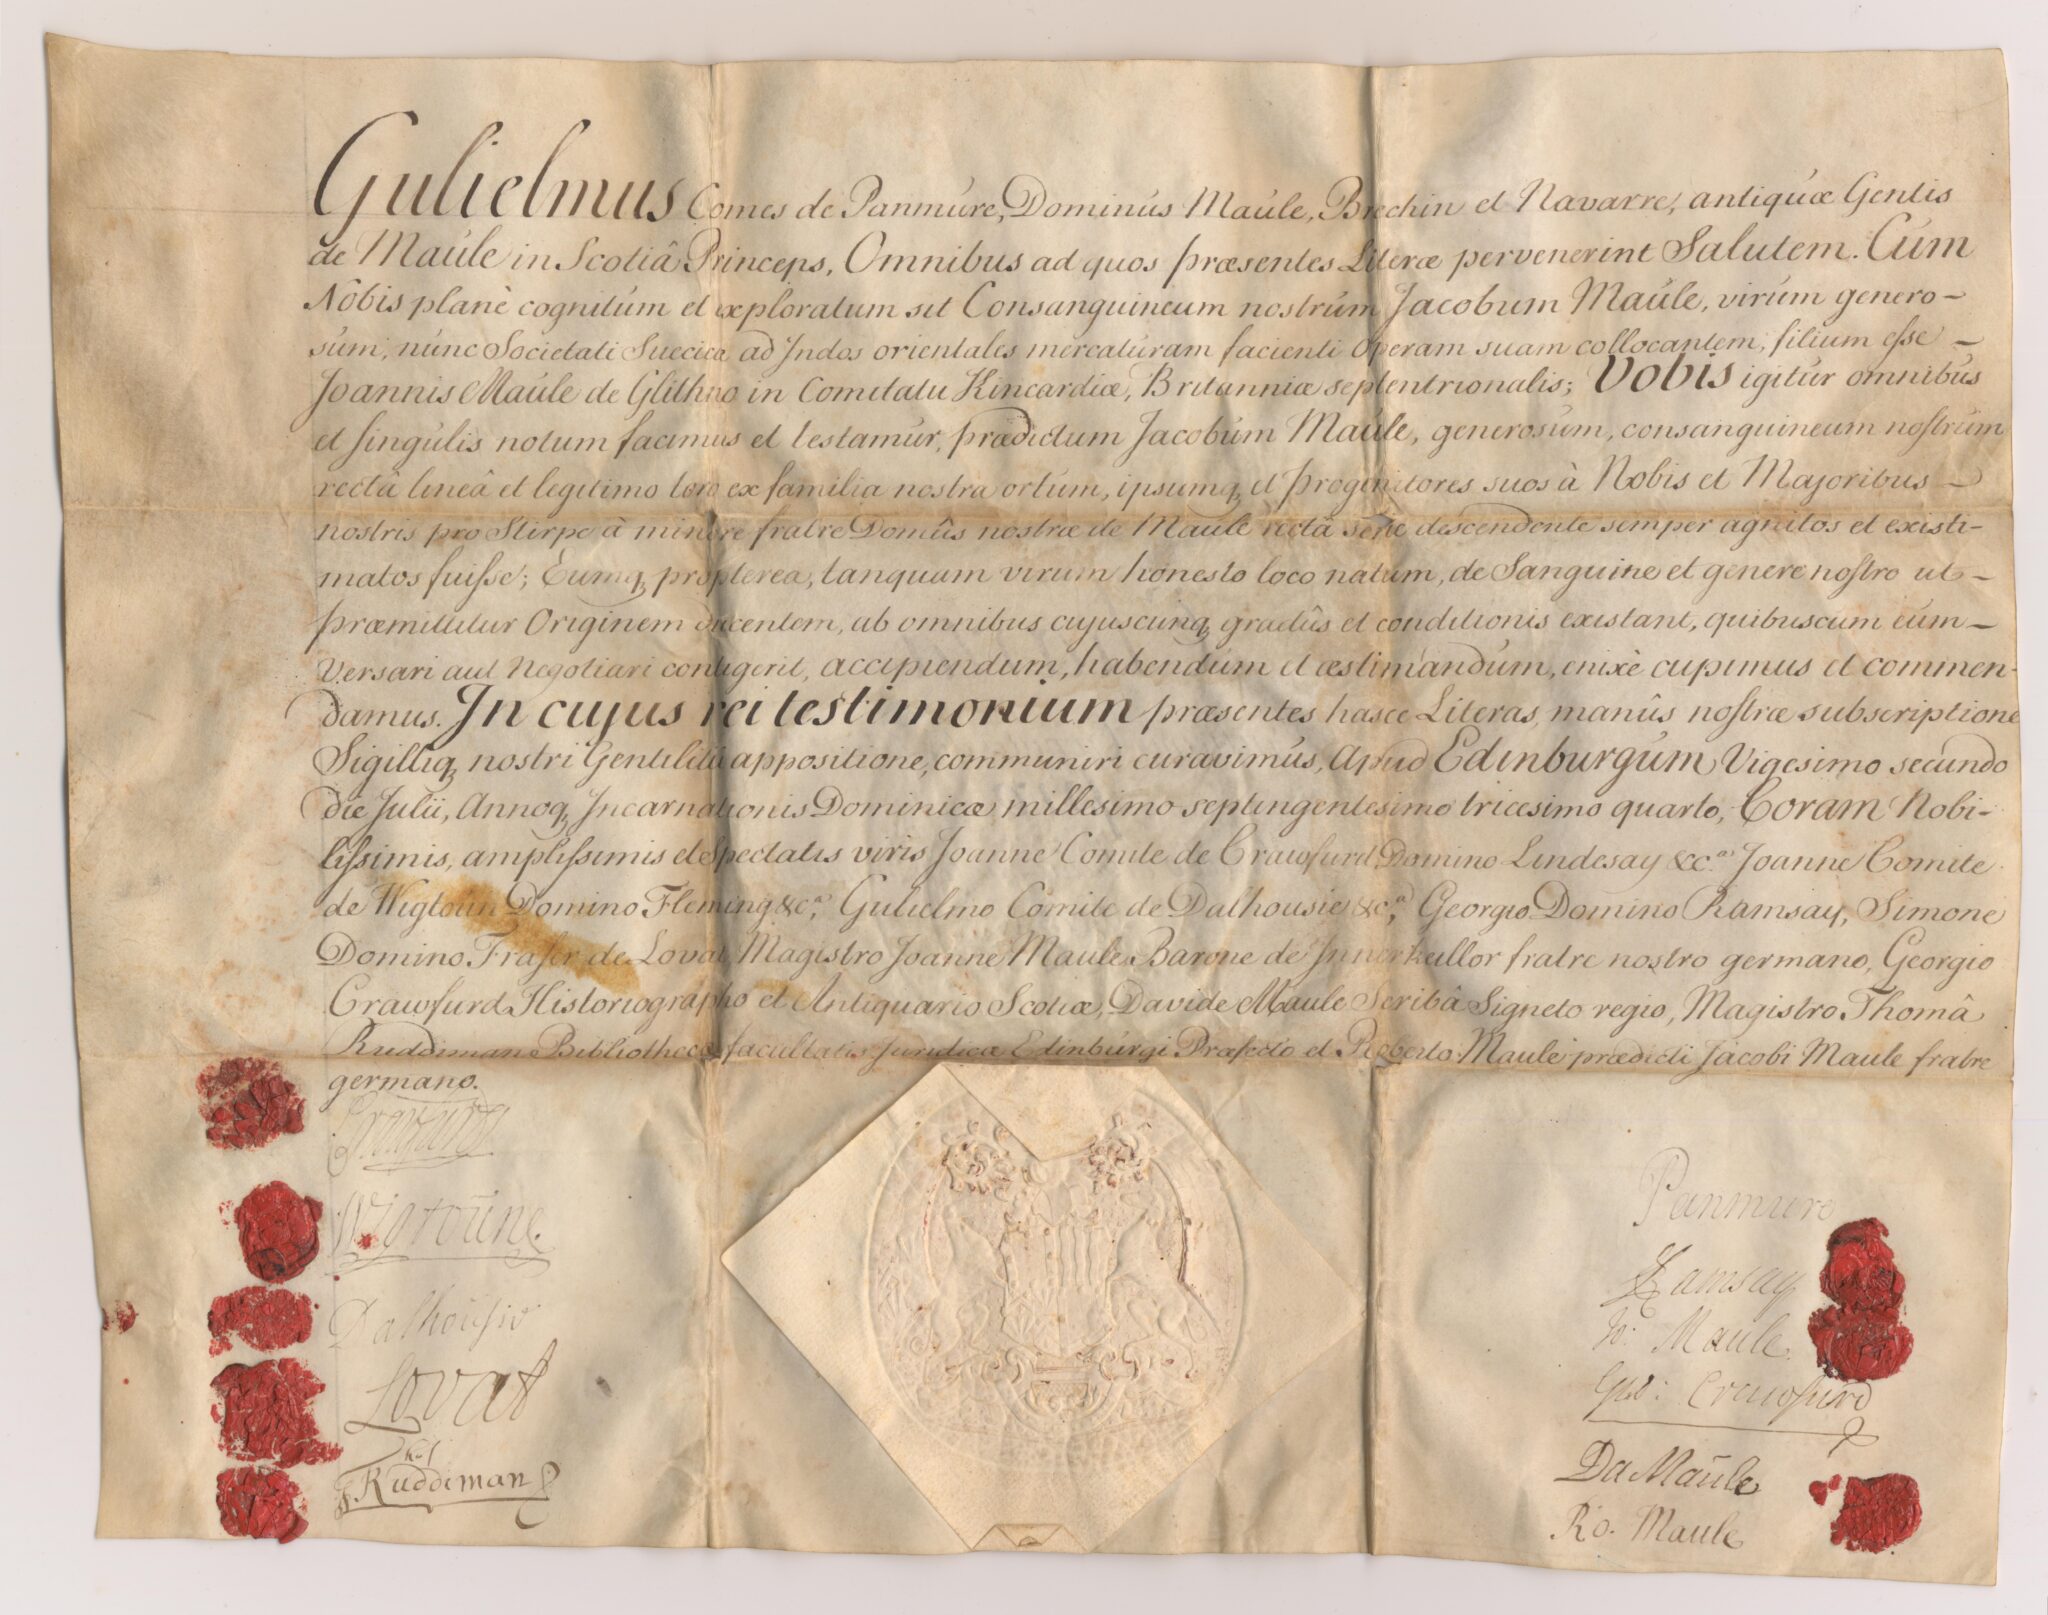 Gulielmus Comes de Panmure, Dominus Maule, Brechin et Navarre, antiquæ Gentis
de Maule in Scotiâ Princeps, Omnibus ad quos præsentes Literæ pervenerint Salutem. Cum
Nobis planè cognitum et exploratum sit Consanguineum nostrum Jacobum Maule, virum genero-
sum, nunc Societati Suecicæ ad Indos orientales mercaturam facienti operam suam collocantem, filium esse -
Joannis Maule de Glithno in Comitatu Kincardiæ, Britanniæ septentrionalis; Vobis igitur omnibus
et singulis notum facimus et testamur, prædictum Jacobum Maule, generosum, consanguineum nostrum
rectâ lineâ et legitimo toro ex familia nostra ortum, ipsumq, et progenitores suos à Nobis et Majoribus -
nostris pro Stirpe à minore fratre Domûs nostræ de Maule rectâ serie descendente semper agnitos et existi-
matos fuisse; Eumq, propterea, tanquam virum honesto loco natum, de Sanguine et genere nostro ut -
præmittitur Originem ducentem, ab omnibus cujuscunq, gradûs et conditionis existant, quibuscum eum -
Versari aut Negotiari contigerit, accipiendum, habendum et æstimandum, enixè cupimus et commen-
damus. In cujus rei testimonium præsentes hasce Literas, manûs nostræ subscriptione
Sigilliq, nostri Gentilitii appositione, communiri curavimus, Apud Edinburgum Vigesimo secundo
die Julii, Annoq, Incarnationis Dominicæ millesimo septingentesimo tricesimo quarto, Coram Nobi-
lissimis, amplissimis et Spectatis viris Joanne Comite de Crawfurd Domino Lindesay &c.a Joanne Comite
de Wigtoun Domino Fleming &c.a, Gulielmo Comite de Dalhousie &c.a, Georgio Domino Ramsay, Simone
Domino Fraser de Lovat, Magistro Joanne Maule Barone de Innerkeillor fratre nostro germano, Georgio
Crawfurd Historiographo et Antiquario Scotiæ, Davide Maule Scribâ Signeto regio, Magistro Thomâ
Ruddiman Bibliothecæ facultatis Juridicæ Edinburgi Præfecto et Roberto Maule prædicti Jacobi Maule fratre
germano.
Craufurd
Wigtoune.
Dalhousie
Lovat
Tho.
Ruddiman
Panmure
Ramsay
Jo: Maule
Geo: Crawfurd
Da Maule
Ro. Maule